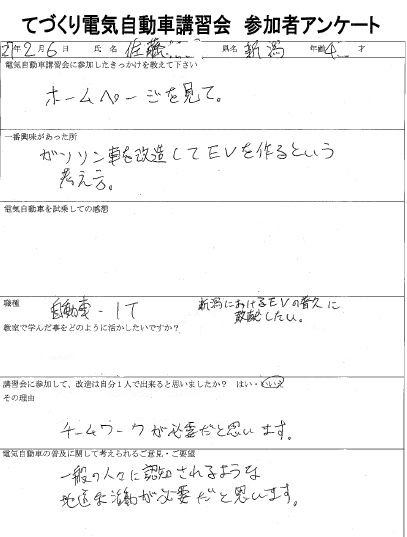 てづくり電気自動車講習会　参加者アンケート
年2月6日　氏名 佐藤　県名 新潟　年齢 4 才
電気自動車講習会に参加したきっかけを教えて下さい
ホームページを見て。
一番興味があった所
ガソリン車を改造してEVを作るという
考え方。
電気自動車を試乗しての感想
職種
自動車-IT
新潟におけるEVの普久に
したい。
教室で学んだ事をどのように活かしたいですか?
講習会に参加して、改造は自分1人で出来ると思いましたか?　はい・いいえ
その理由
チームワークが必要だと思います。
電気自動車の普及に関して考えられるご意見・ご要望
一般の人々に認知されるような
地道な活動が必要だと思います。